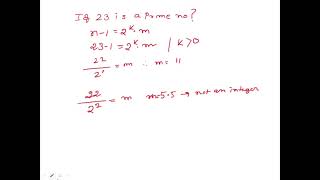 If 23 is a prime no?
n-1 = 2^k. m
23-1 = 2^k. m | k>0
22/2^1 = m ∴ m = 11
22/2^2 = m m=5.5 → not an integer